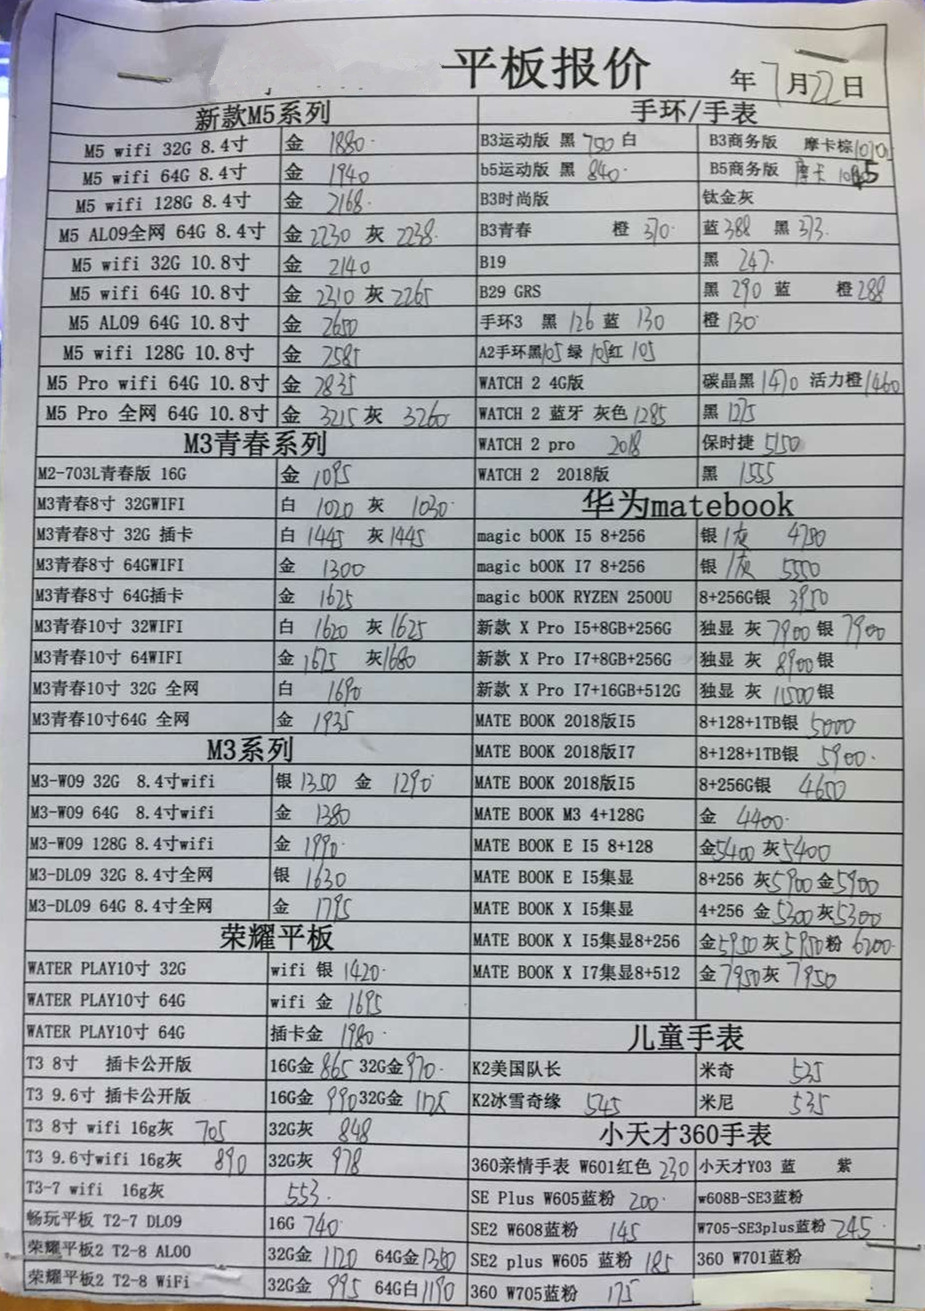 平板报价 年7月22日
新款M5系列 手环/手表
M5 wifi 32G 8.4寸 金 1880 B3运动版 黑 790 白 B3商务版 摩卡棕1010
M5 wifi 64G 8.4寸 金 1940 b5运动版 黑 840 B5商务版 摩卡
M5 wifi 128G 8.4寸 金 2168 B3时尚版 钛金灰
M5 AL09全网 64G 8.4寸 金 2230 灰 2238 B3青春 橙 370 蓝 388 黑 373
M5 wifi 32G 10.8寸 金 2140 B19 黑 247
M5 wifi 64G 10.8寸 金 2310 灰 2265 B29 GRS 黑 290 蓝 橙 288
M5 AL09 64G 10.8寸 金 2650 手环3 黑 126 蓝 130 橙 130
M5 wifi 128G 10.8寸 金 2585 A2手环黑105 绿 105红 105
M5 Pro wifi 64G 10.8寸 金 2835 WATCH 2 4G版 碳晶黑 1470 活力橙 1460
M5 Pro 全网 64G 10.8寸 金 3215 灰 3260 WATCH 2 蓝牙 灰色 1285 黑 1275
M3青春系列 WATCH 2 pro 2018 保时捷 5150
M2-703L青春版 16G 金 1095 WATCH 2 2018版 黑 1555
M3青春8寸 32GWIFI 白 1020 灰 1030 华为matebook
M3青春8寸 32G 插卡 白 1445 灰 1445 magic bOOK I5 8+256 银/灰 4780
M3青春8寸 64GWIFI 金 1300 magic bOOK I7 8+256 银/灰 5550
M3青春8寸 64G插卡 金 1625 magic bOOK RYZEN 2500U 8+256G银 3950
M3青春10寸 32WIFI 白 1620 灰 1625 新款 X Pro I5+8GB+256G 独显 灰 7900 银 7900
M3青春10寸 64WIFI 金 1675 灰 1680 新款 X Pro I7+8GB+256G 独显 灰 8900 银
M3青春10寸 32G 全网 白 1690 新款 X Pro I7+16GB+512G 独显 灰 11500 银
M3青春10寸64G 全网 金 1935 MATE BOOK 2018版I5 8+128+1TB银 5000
M3系列 MATE BOOK 2018版I7 8+128+1TB银 5900
M3-W09 32G 8.4寸wifi 银 1350 金 1290 MATE BOOK 2018版I5 8+256G银 4650
M3-W09 64G 8.4寸wifi 金 1380 MATE BOOK M3 4+128G 金 4400
M3-W09 128G 8.4寸wifi 金 1990 MATE BOOK E I5 8+128 金5400 灰5400
M3-DL09 32G 8.4寸全网 银 1630 MATE BOOK E I5集显 8+256 灰5900 金5900
M3-DL09 64G 8.4寸全网 金 1795 MATE BOOK X I5集显 4+256 金 5300 灰5300
荣耀平板 MATE BOOK X I5集显8+256 金5950 灰5950 粉 6200
WATER PLAY10寸 32G wifi 银 1420 MATE BOOK X I7集显8+512 金 7950 灰 7950
WATER PLAY10寸 64G wifi 金 1695
WATER PLAY10寸 64G 插卡金 1980 儿童手表
T3 8寸 插卡公开版 16G金 865 32G金 970 K2美国队长 米奇 535
T3 9.6寸 插卡公开版 16G金 990 32G金 1125 K2冰雪奇缘 545 米尼 535
T3 8寸 wifi 16g灰 705 32G灰 848 小天才360手表
T3 9.6寸wifi 16g灰 890 32G灰 978 360亲情手表 W601红色 230 小天才Y03 蓝 紫
T3-7 wifi 16g灰 553 SE Plus W605蓝粉 200 w608B-SE3蓝粉
畅玩平板 T2-7 DL09 16G 740 SE2 W608蓝粉 145 W705-SE3plus蓝粉 245
荣耀平板2 T2-8 AL00 32G金 1120 64G金1350 SE2 plus W605 蓝粉 185 360 W701蓝粉
荣耀平板2 T2-8 WiFi 32G金 995 64G白1190 360 W705蓝粉 175